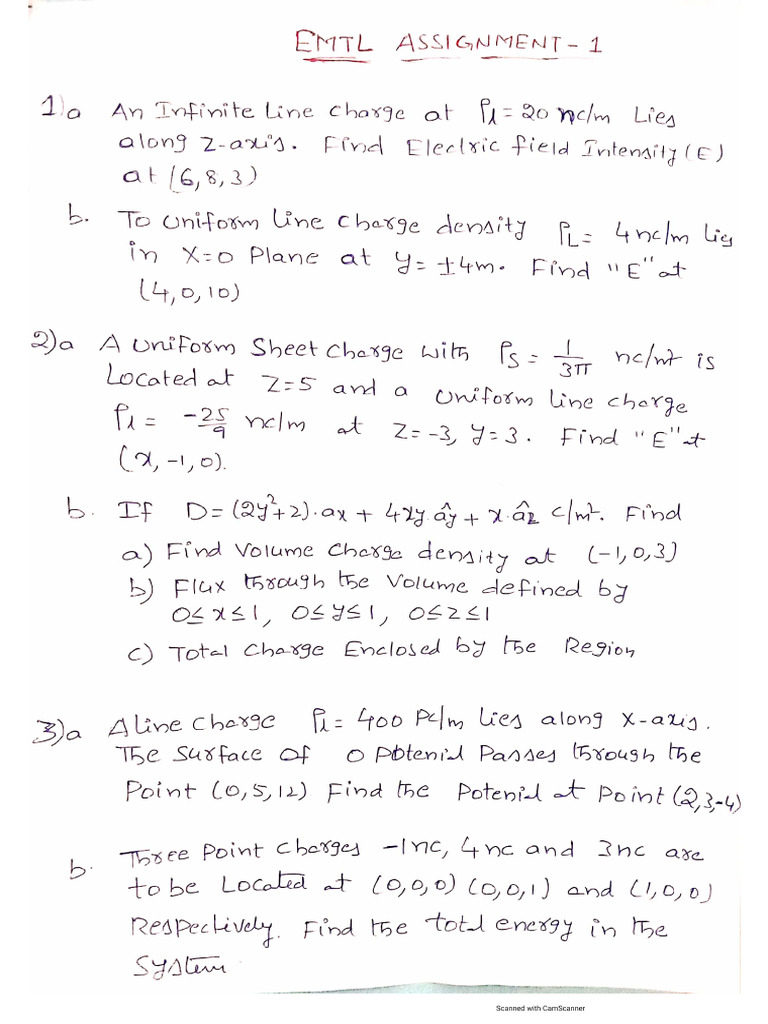 EMTL ASSIGNMENT-1
1)a An Infinite Line charge at ρl = 20 nc/m Lies
along Z-axis. Find Electric field Intensity (E)
at (6,8,3)
b. To Uniform Line charge density ρL = 4nc/m lies
in X=0 Plane at y= ±4m. Find "E" at
(4,0,10)
2)a A Uniform Sheet charge with ρs = 1/3π nc/m² is
Located at Z=5 and a Uniform line charge
ρl = -25/9 nc/m at Z=-3, y=3. Find "E" at
(x,-1,0).
b. If D=(2y²+z).ax + 4xy.ây + x.âz c/m². Find
a) Find Volume charge density at (-1,0,3)
b) Flux through the Volume defined by
0≤x≤1, 0≤y≤1, 0≤z≤1
c) Total Charge Enclosed by the Region
3)a A line charge ρl = 400 Pc/m lies along X-axis.
The surface of 0 Potenial Passes through the
Point (0,5,12) Find the Potenial at Point (2,3,-4)
b. Three Point charges -1nc, 4nc and 3nc are
to be Located at (0,0,0) (0,0,1) and (1,0,0)
Respectively. Find the total energy in the
System.
Scanned with CamScanner